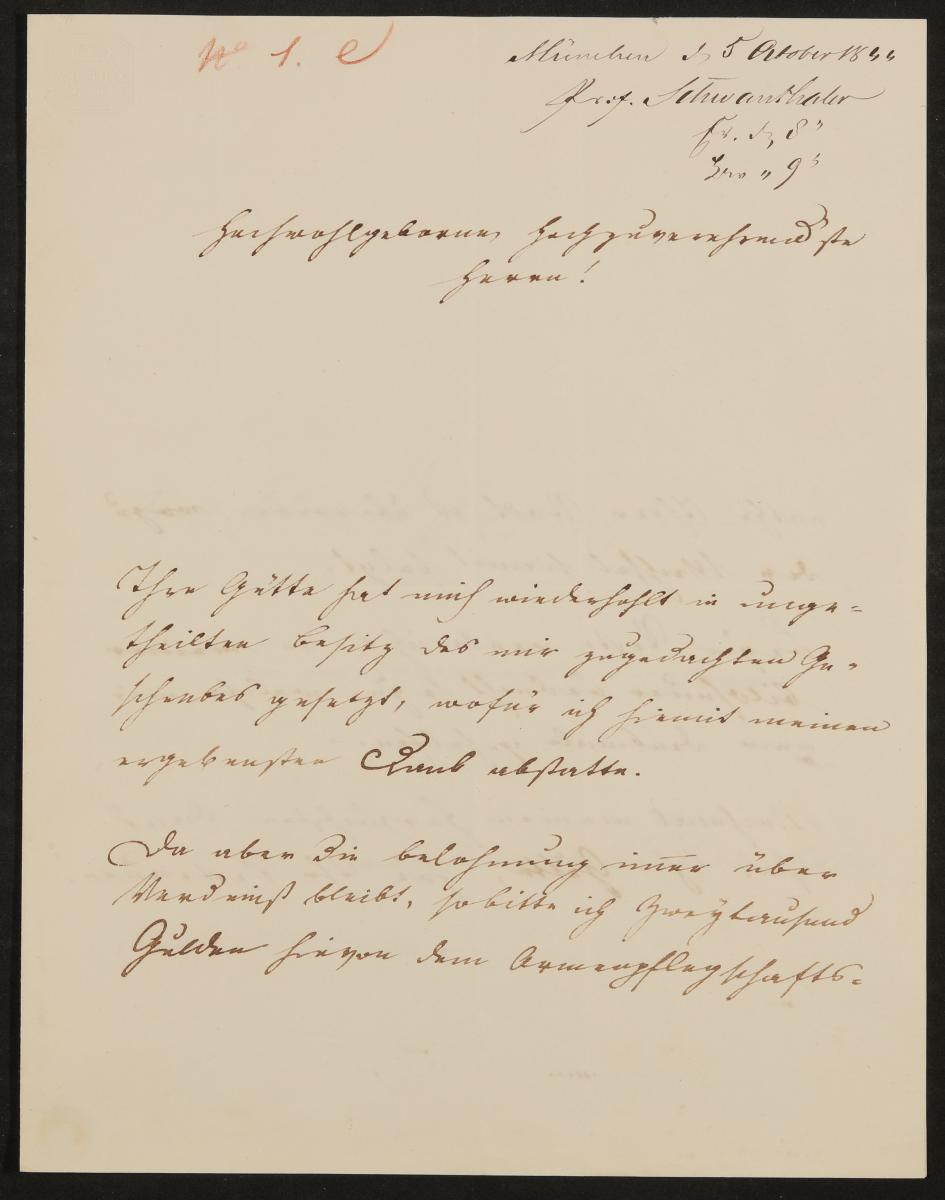 No 1. e
München d. 5 October 1844
Prof. Schwanthaler
Er. d. 8"
" 9"
Hochwohlgeborne, Hochzuverehrendste
Herrn!
Ihre Gütte hat mich wiederhohlt in unge-
theilten Besitz des mir zugedachten Ge-
schenkes gesetzt, wofür ich hiemit meinen
ergebensten Dank abstatte.
Da aber die Belohnung im̅er über
Verdienst bleibt, so bitte ich Zweytausend
Gulden hievon dem Armenpflegschafts-